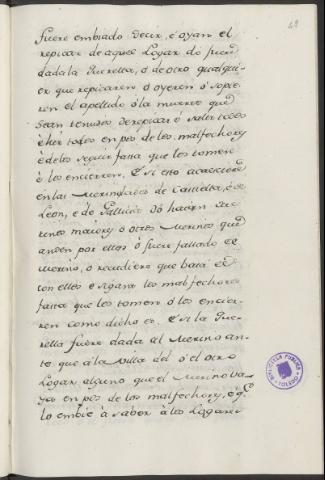 48
fuere embiado decir, é oyan el
repicar de aquel Logar do fuere
dada la Querella, ó de otro qualqui-
er que repicaren ó oyeren ó sopie-
ren el apellido ó la muerte que
sean tenudos de repicar é salir todos
é hir todos en pos de los malfechores
é de los seguir fasta que los tomen
ó los encierren. E si esto acaesciere
en las Merindades de Castiella, é de
Leon, é de Gallicia dó hacen Me-
rinos maiores ó otros Merinos que
anden por ellos ó fuere fallado el
Merino, ó recudiere que baia él
con ellos é sigan á los malfechores
fasta que los tomen ó los encier-
ren como dicho es. E si la Que-
rella fuere dada al Merino an-
te que á la villa del ó el otro
Logar alguno que el Merino va-
ya en pos de los malfechores, é q.e
lo embie á sabor á los Logares
BIBLIOTECA PUBLICA
TOLEDO